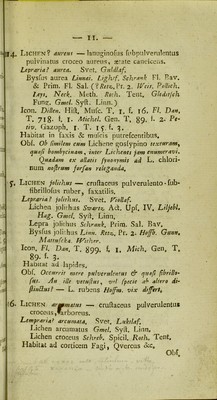 — 11 —
14. LICHEN? aureus — lanuginosus subpulverulentus
pulvinatus croceo aureus, ætate canescens.
Lepraria? aurea. Svet. Guldlaf.
Byssus aurea Linnæi. Lightf. Schrank Fl. Bav.
& Prim. Fl. Sal. (? Retz, Pt. 2. Weis. Pollich.
Leys. Neck. Meth. Roth. Tent. Gleditsch
Fung. Gmel. Syst. Linn.)
Icon. Dillen. Hist. Musc. T. 1. f. 16. Fl. Dan.
T. 718. f. 1. Michel. Gen. T. 89. f. 2. Pe-
tiv. Gazoph. 1. T. 15. f. 3.
Habitat in saxis & muscis putrescentibus.
Obs. Ob similem cum Lichene gosypino texturam,
quasi bombycinam, inter Lichenes jam enumeravi.
Quædam ex allatis synonymis ad L. chlori-
num nostrum forsan releganda.
5. LICHEN jolithus — crustaceus pulverulento-sub-
fibrillosus ruber, saxatilis.
Lepraria? jolithus. Svet. Viollaf.
Lichen jolithus Swartz. Act. Ups. IV. Liljebl.
Hag. Gmel. Syst. Linn.
Lepra jolithus Schrank. Prim. Sal. Bav.
Byssus jolithus Linn. Retz. Pt. 2. Hoffm. Gunn.
Mattuschka. Weber.
Icon. Fl. Dan. T. 899. f. 1. Mich. Gen. T.
89. f. 3.
Habitat ad lapides.
Obs. Occurrit mere pulverulentus & quasi fibrillo-
sus. An ille vetustus, vel specie ab altero di-
stinctus? — L. rubens Hoffm. vix differt.
16. LICHEN arcuatus — crustaceus pulverulentus
croceus, arboreus.
Lempraria? arcumata. Svet. Lukslaf.
Lichen arcuatus Gmel. Syst. Linn.
Lichen croceus Schreb. Spicil. Roth. Tent.
Habitat ad corticem Fagi, Qvercus &c.
Obs.